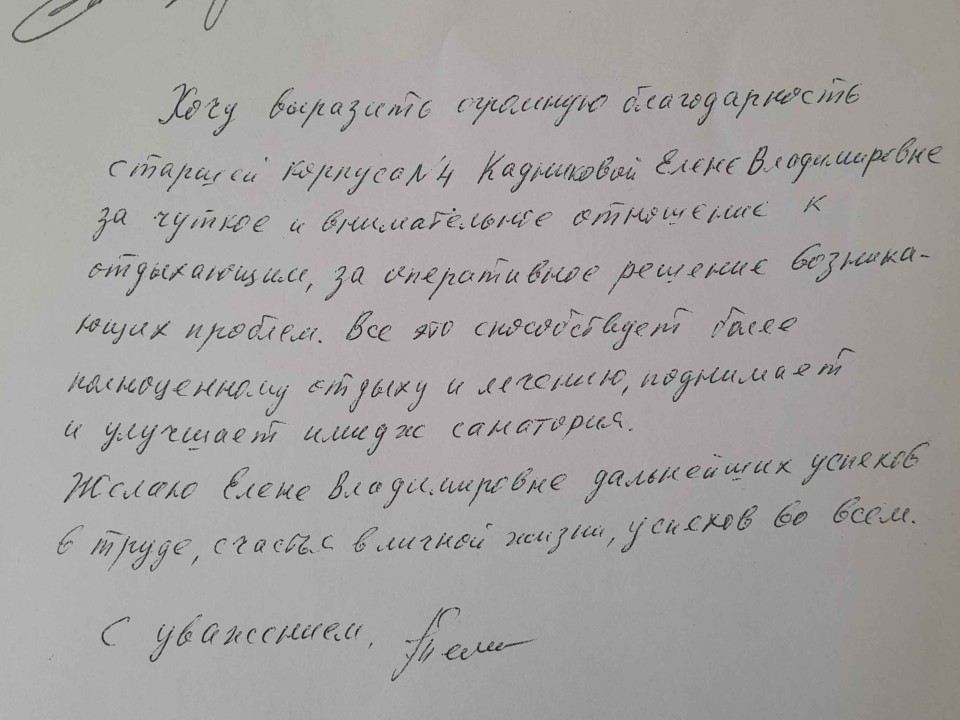 Хочу выразить огромную благодарность
старшей корпуса №4 Кадниковой Елене Владимировне
за чуткое и внимательное отношение к
отдыхающим, за оперативное решение возника-
ющих проблем. Все это способствует более
полноценному отдыху и лечению, поднимает
и улучшает имидж санатория.
Желаю Елене Владимировне дальнейших успехов
в труде, счастья в личной жизни, успехов во всем.
С уважением,